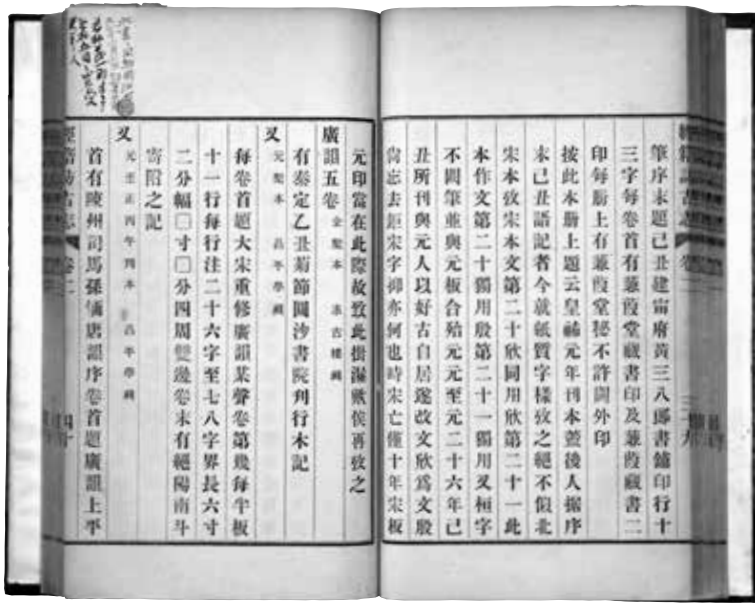 經籍訪古志 卷二 三十九
筆序末題己丑建甯府黃三八郎書鋪印行十
三字每卷首有蒹葭堂藏書印及蒹葭藏書二
印每册上有蒹葭堂秘不許闔外印
按此本册上題云皇祐元年刊本蓋後人據序
末己丑語記者今就紙質字樣攷之絕不類北
宋本攷宋本文第二十欣同用欣第二十一此
本作文第二十獨用殷第二十一獨用又桓字
不闕筆並與元板合殆元元至元二十六年己
丑所刊與元人以好古自居遂改文欣爲文殷
尙忘去距宋字抑亦何也時宋亡僅十年宋板
元印當在此際故致此掍淆歟俟再攷之
廣韻五卷 金槧本 求古樓藏
有泰定乙丑菊節圓沙書院刊行木記
又 元槧本 昌平學藏
每卷首題大宋重修廣韻某聲卷第幾每半板
十一行每行注二十六字至七八字界長六寸
二分幅□寸□分四周雙邊卷末有絕陽南斗
寄附之記
又 元至正丙午刊本 昌平學藏
首有陳州司馬孫愐唐韻序卷首題廣韻上平
經籍訪古志 卷二 四十